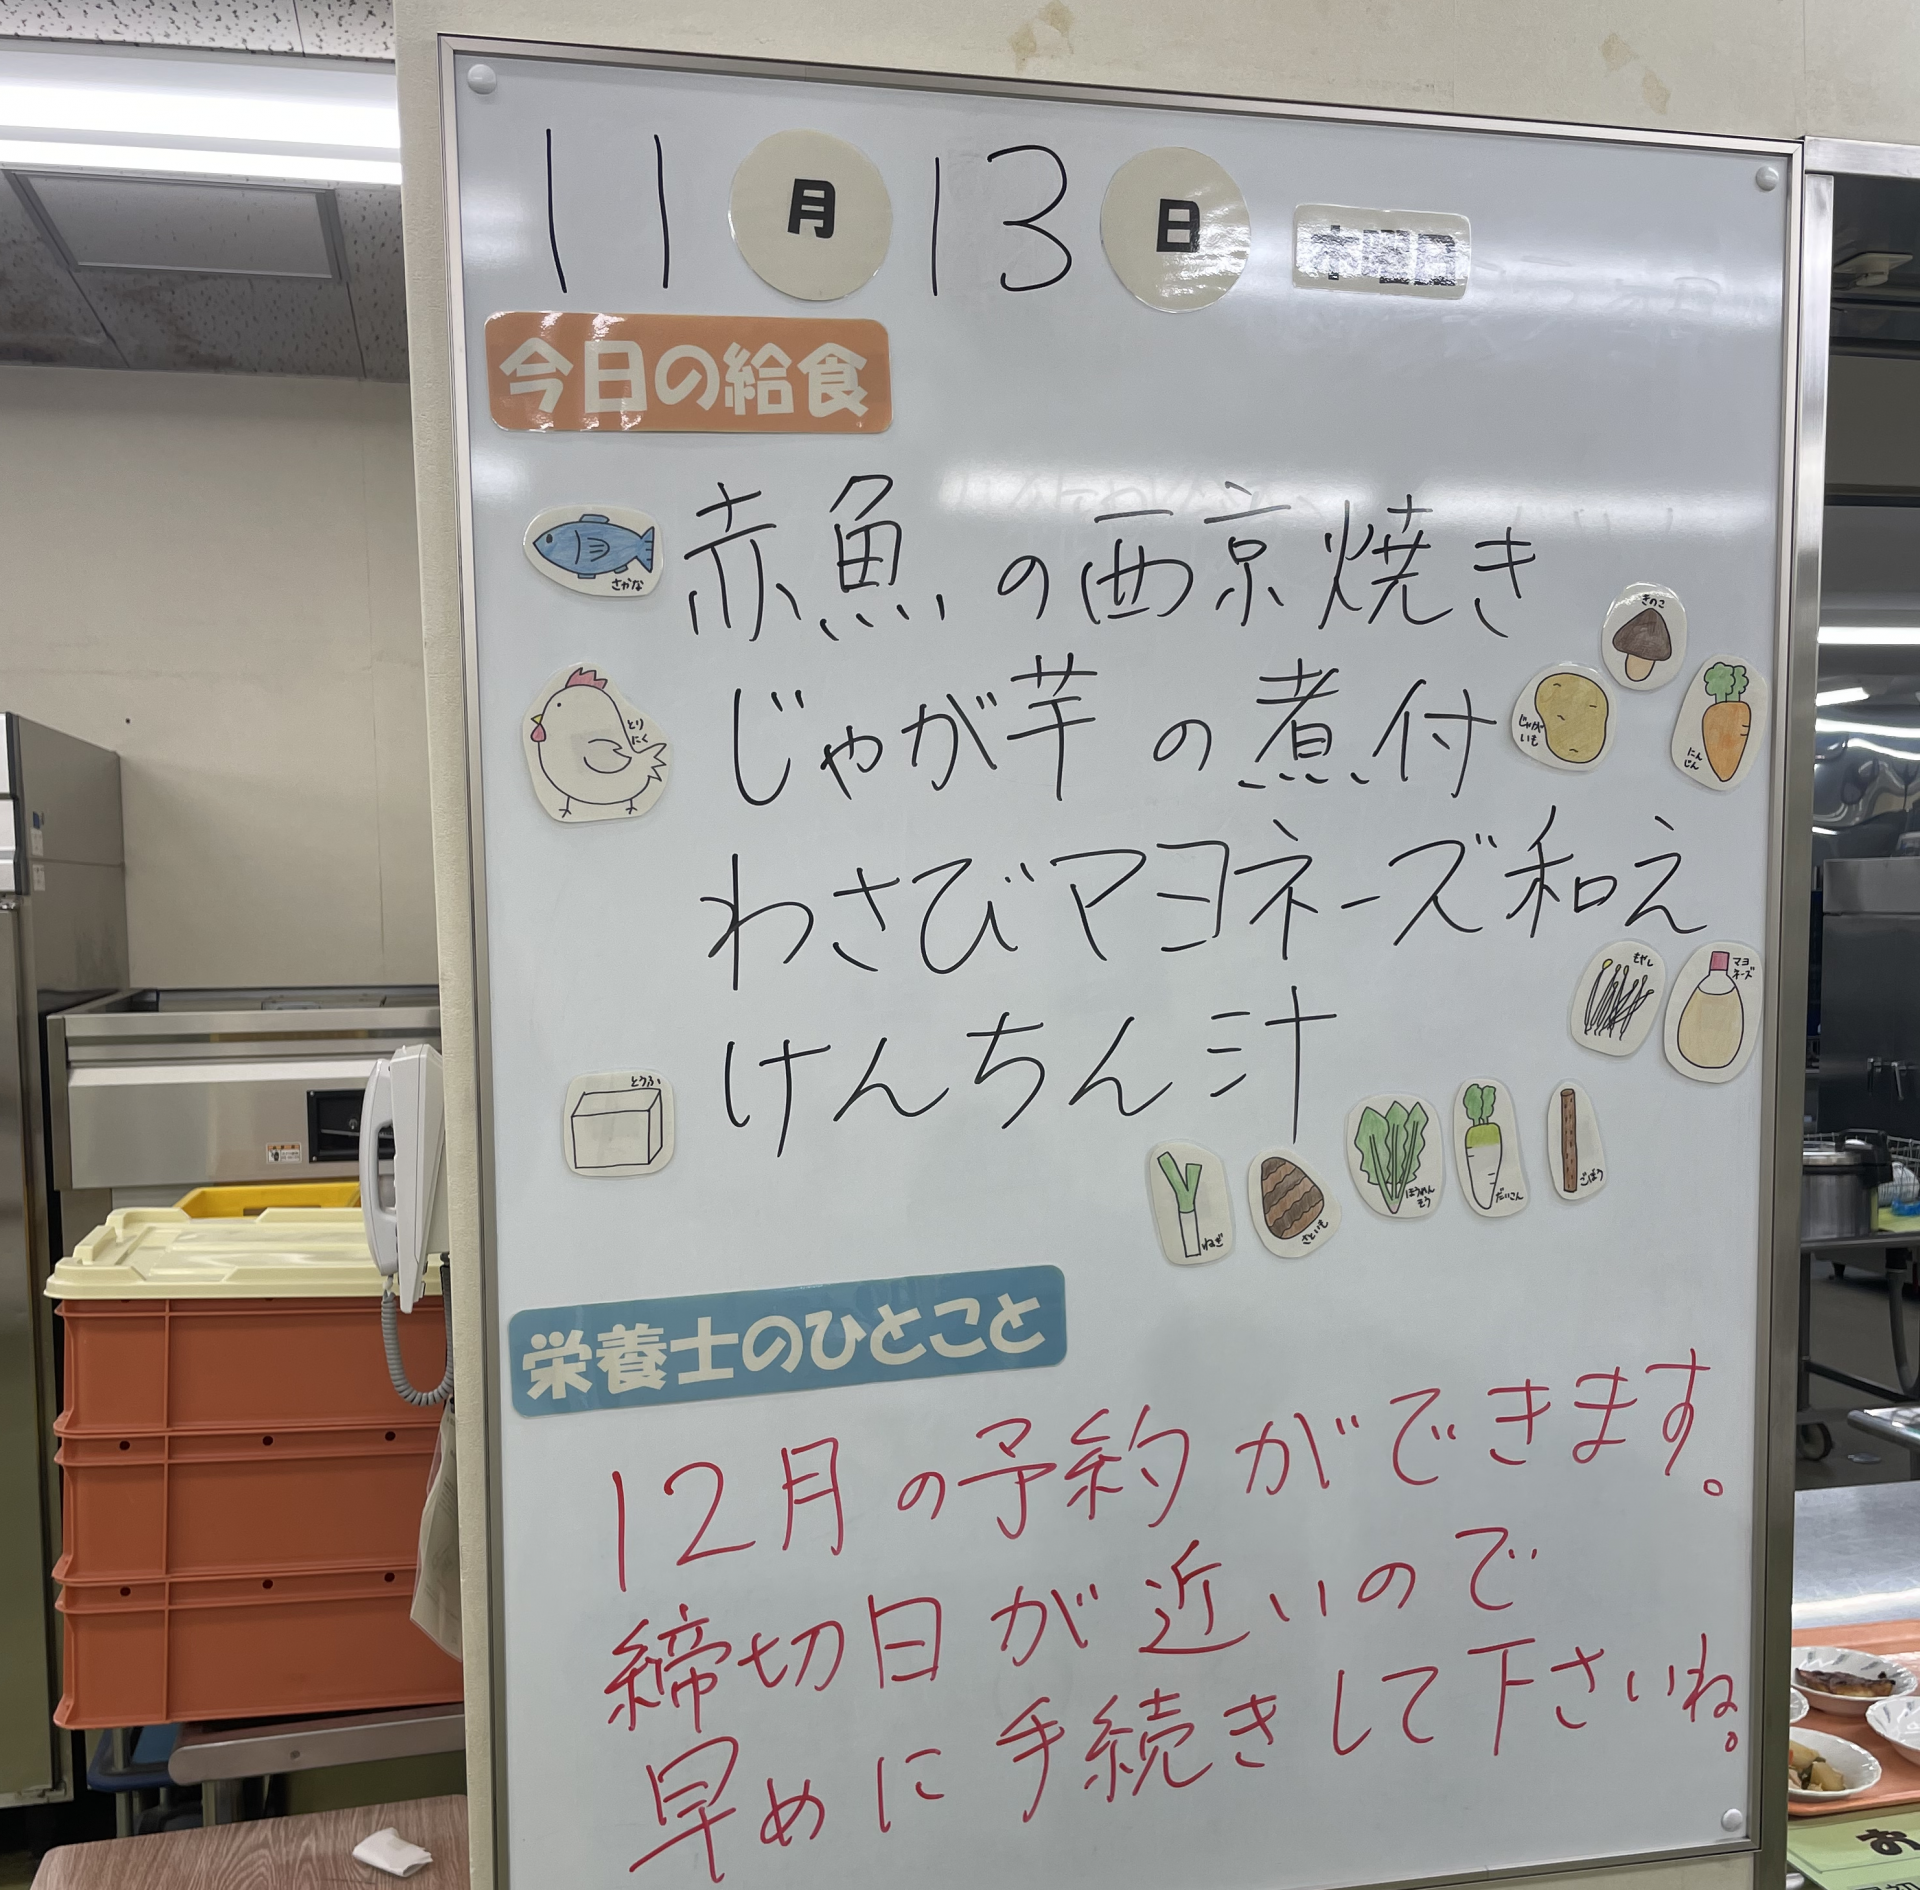 11月13日 木曜日
今日の給食
さかな
赤魚の西京焼き
きのこ
とりにく
じゃが芋の煮付
じゃがいも
にんじん
わさびマヨネーズ和え
もやし
マヨネーズ
とうふ
けんちん汁
ねぎ
さといも
ほうれんそう
だいこん
ごぼう
栄養士のひとこと
12月の予約ができます。
締切日が近いので
早めに手続きして下さいね。
お